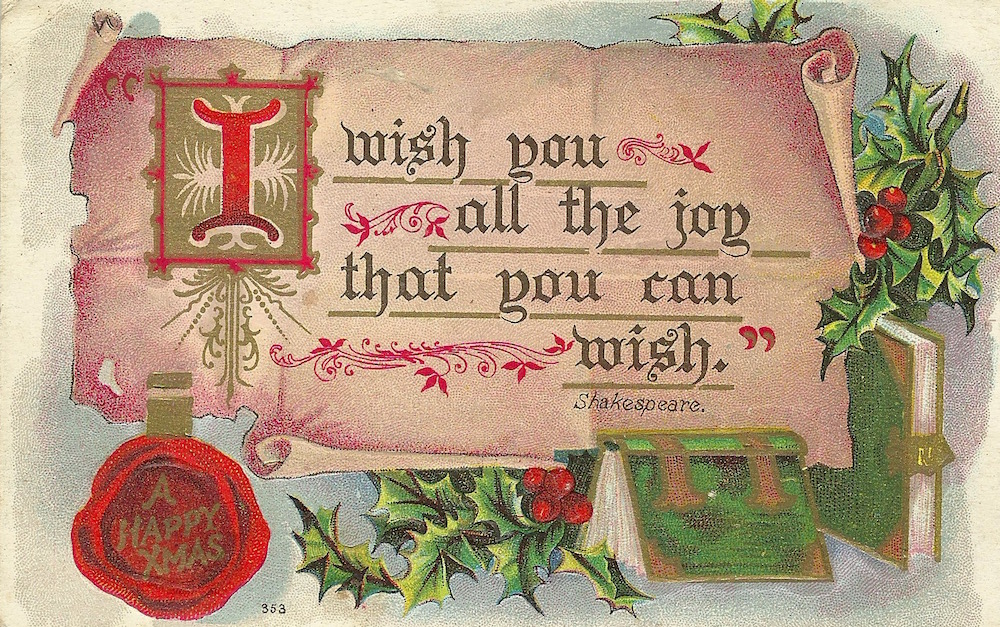 “I wish you
all the joy
that you can
wish.”
Shakespeare.
A
HAPPY
XMAS
353